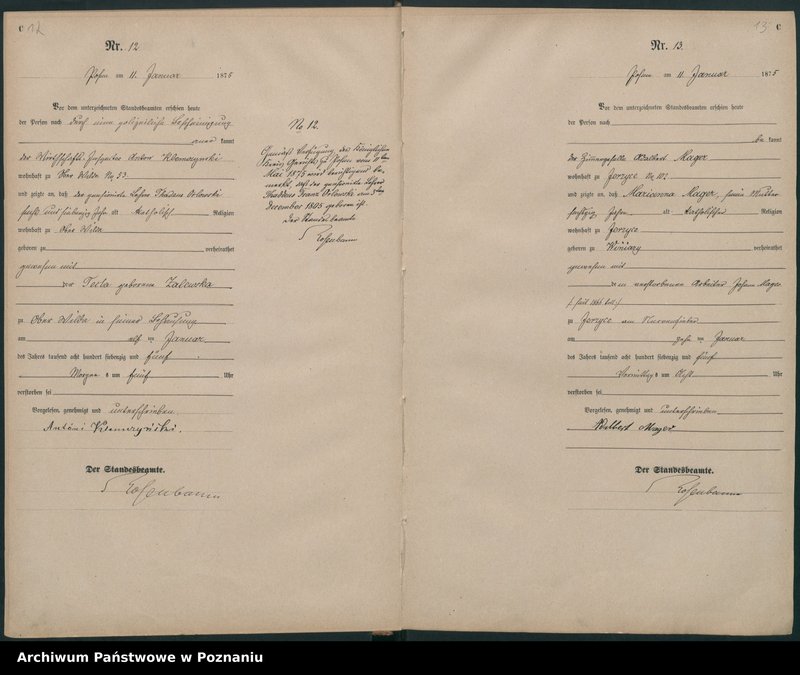 C 12
Nr. 12
Posen am 11. Januar 1875
Vor dem unterzeichneten Standesbeamten erschien heute
der Person nach durch eine polizeiliche Bescheinigung
aner kannt
der Wirthschafts-Inspector Anton Klemczynski
wohnhaft zu Ober Wilda No 53
und zeigte an, daß der pensionirte Lehrer Thadaeus Orlowski
sechs und siebenzig Jahr alt katholisch Religion
wohnhaft zu Ober Wilda
geboren zu verheirathet
gewesen mit
der Tecla geborene Zalewska
zu Ober Wilda in seiner Behausung
am elf ten Januar
des Jahres tausend acht hundert siebenzig und fünf
Morgens um fünf Uhr
verstorben sei
Vorgelesen, genehmigt und unterschrieben
Antoni Klemczyński.
Der Standesbeamte.
Rosenbaum
No 12.
Gemäß Verfügung des Königlichen
Kreis Gerichts zu Posen vom
Mai 1875 wird berichtigend be-
merkt, daß der pensionirte Lehrer
Thaddeus Franz Orlowski am
December 1805 geboren ist
Der Standesbeamte
Rosenbaum
13 C
Nr. 13.
Posen am 11 Januar 1875
Vor dem unterzeichneten Standesbeamten erschien heute
der Person nach
be kannt
der Zimmergeselle Adalbert Mager
wohnhaft zu Jerzyce No 101
und zeigte an, daß Marianna Mager, seine Mutter
sechszig Jahr alt katholischer Religion
wohnhaft zu Jerzyce
geboren zu Winiary verheirathet
gewesen mit
dem verstorbenen Arbeiter Johann Mager
zu Jerzyce am Nervenfieber
am zehn ten Januar
des Jahres tausend acht hundert siebenzig und fünf
Vormittags um Acht Uhr
verstorben sei
Vorgelesen, genehmigt und unterschrieben
Mager
Der Standesbeamte.
Rosenbaum
Archiwum Państwowe w Poznaniu